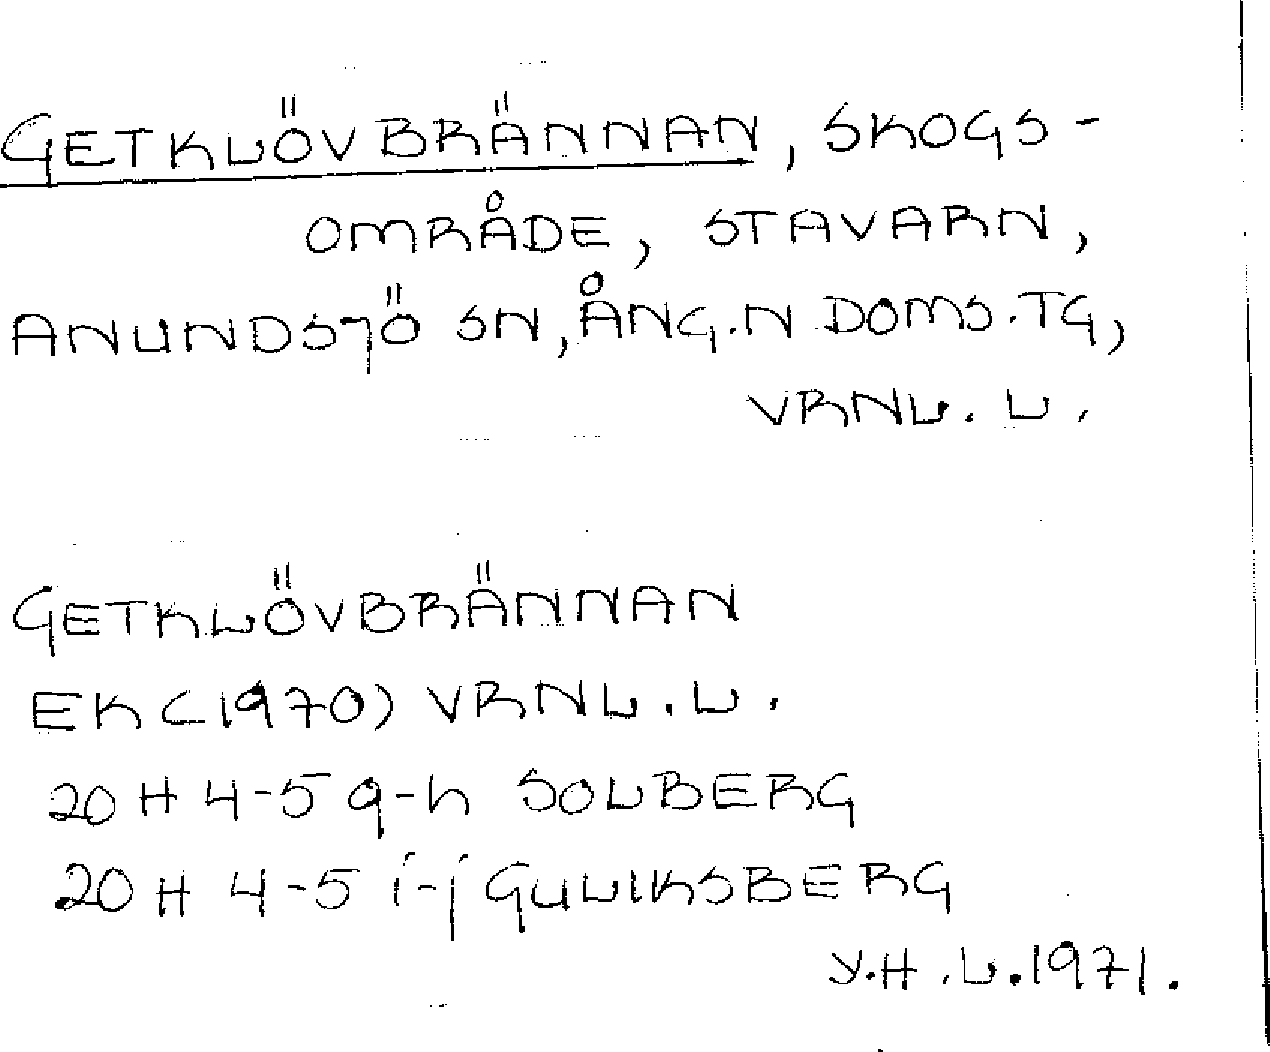 GETKLÖVBRÄNNAN, SKOGS-
OMRÅDE, STAVARN,
ANUNDSJÖ SN, ÅNG.N DOMS.TG,
VRNL. L.
GETKLÖVBRÄNNAN
EK (1970) VRNL. L.
20 H 4-5 g-h SOLBERG
20 H 4-5 i-j GULIKSBERG
Y.H.L. 1971.